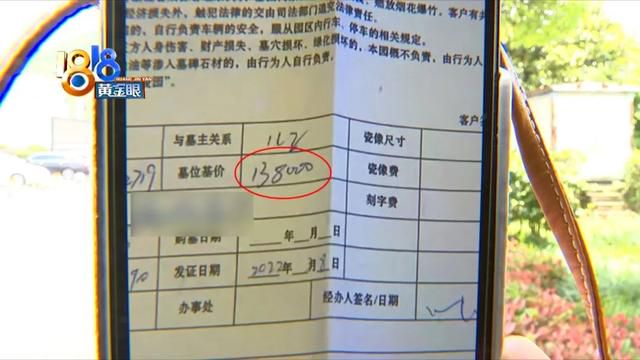 、燃放烟花爆竹。客户有
经济损失外，触犯法律的交由司法部门追究法律责任。
自行负责车辆的安全，顺从园区内行车、停车的相关规定。
方人身伤害、财产损失、墓穴损坏、绿化损坏的，本园概不负责，由行为人
油等渗入墓碑石材的，由行为人自行负责，
1818
黄金眼
与墓主关系 瓷像尺寸
墓位基价 138000 瓷像费
刻字费
购墓日期 年 月 日
发证日期 2022年 月 日
办事处 经办人签名/日期